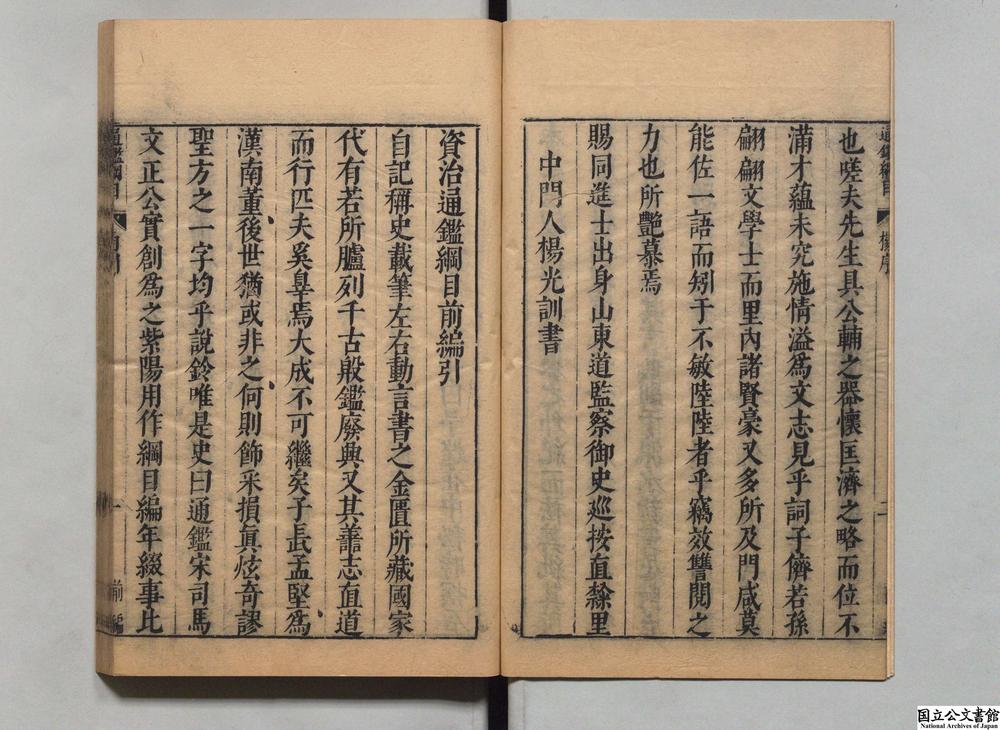 通鑑綱目
楊序
二
也嗟夫先生具公輔之器懷匡濟之略而位不
滿才蘊未究施情溢爲文志見乎詞子儕若孫
翩翩文學士而里內諸賢豪又多所及門咸莫
能佐一語而矧于不敏陸陸者乎竊效讐閱之
力也所艷慕焉
賜同進士出身山東道監察御史巡按直隸里
中門人楊光訓書
資治通鑑綱目前編引
自記稱史載筆左右動言書之金匱所藏國家
代有若所臚列千古般鑑廢興又其善志直道
而行匹夫奚辠焉大成不可繼矣子長孟堅爲
漢南董後世猶或非之何則飾采損眞炫奇謬
聖方之一字均乎說鈴唯是史曰通鑑宋司馬
文正公實創爲之紫陽用作綱目編年綴事比
通鑑綱目
前編
国立公文書館
National Archives of Japan